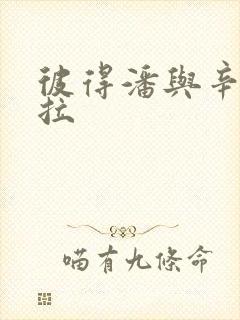 彼得潘與辛
拉
喵有九條命